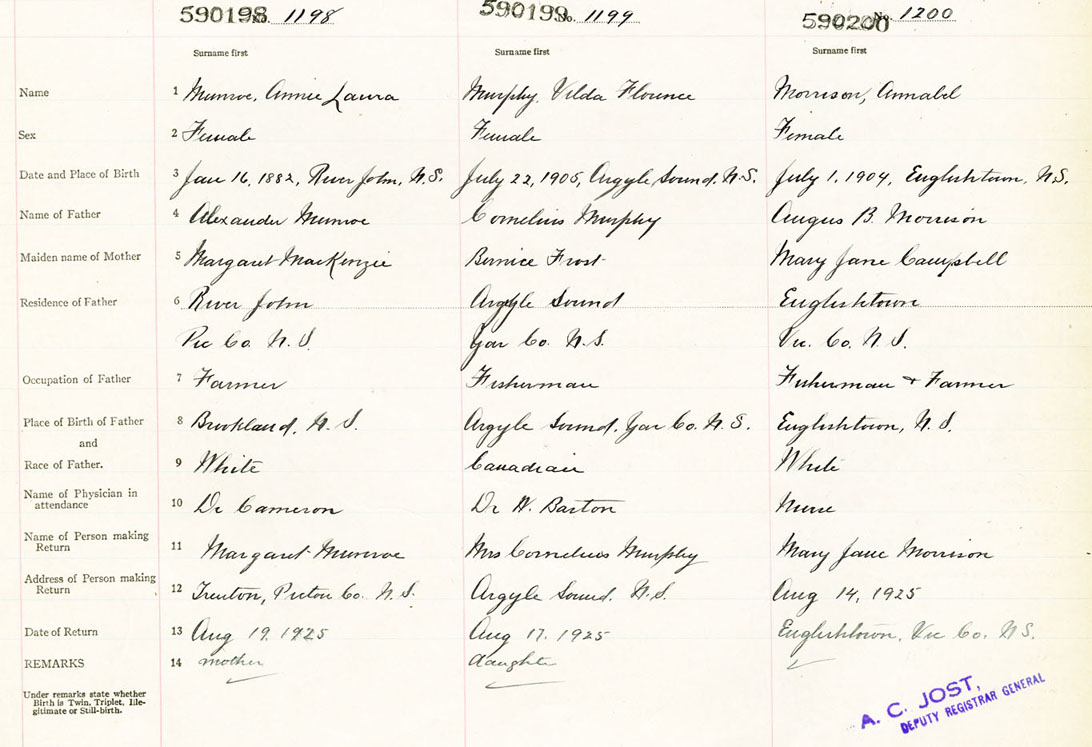 590198 No. 1198 590199 No. 1199 590200 No. 1200
Surname first Surname first Surname first
Name 1 Munroe, Annie Laura Murphy, Velda Florence Morrison, Annabel
Sex 2 Female Female Female
Date and Place of Birth 3 Jan 16, 1882, River John, N.S. July 22, 1905, Argyle Sound, N.S. July 1, 1904, Englishtown, N.S.
Name of Father 4 Alexander Munroe Cornelius Murphy Angus B. Morrison
Maiden name of Mother 5 Margaret MacKenzie Bernice Frost Mary Jane Campbell
Residence of Father 6 River John Argyle Sound Englishtown
Pic Co. N.S. Yar Co. N.S. Vic. Co. N.S.
Occupation of Father 7 Farmer Fisherman Fisherman + Farmer
Place of Birth of Father 8 Brookland, N.S. Argyle Sound, Yar Co. N.S. Englishtown, N.S.
and
Race of Father. 9 White Canadian White
Name of Physician in
attendance 10 Dr Cameron Dr W. Barton Nurse
Name of Person making
Return 11 Margaret Munroe Mrs Cornelius Murphy Mary Jane Morrison
Address of Person making
Return 12 Trenton, Pictou Co. N.S. Argyle Sound, N.S. Aug 14, 1925
Date of Return 13 Aug 19, 1925 Aug 17, 1925 Englishtown, Vic Co. N.S.
REMARKS 14 mother daughter
Under remarks state whether
Birth is Twin, Triplet, Ille-
gitimate or Still-birth.
A. C. JOST,
DEPUTY REGISTRAR GENERAL